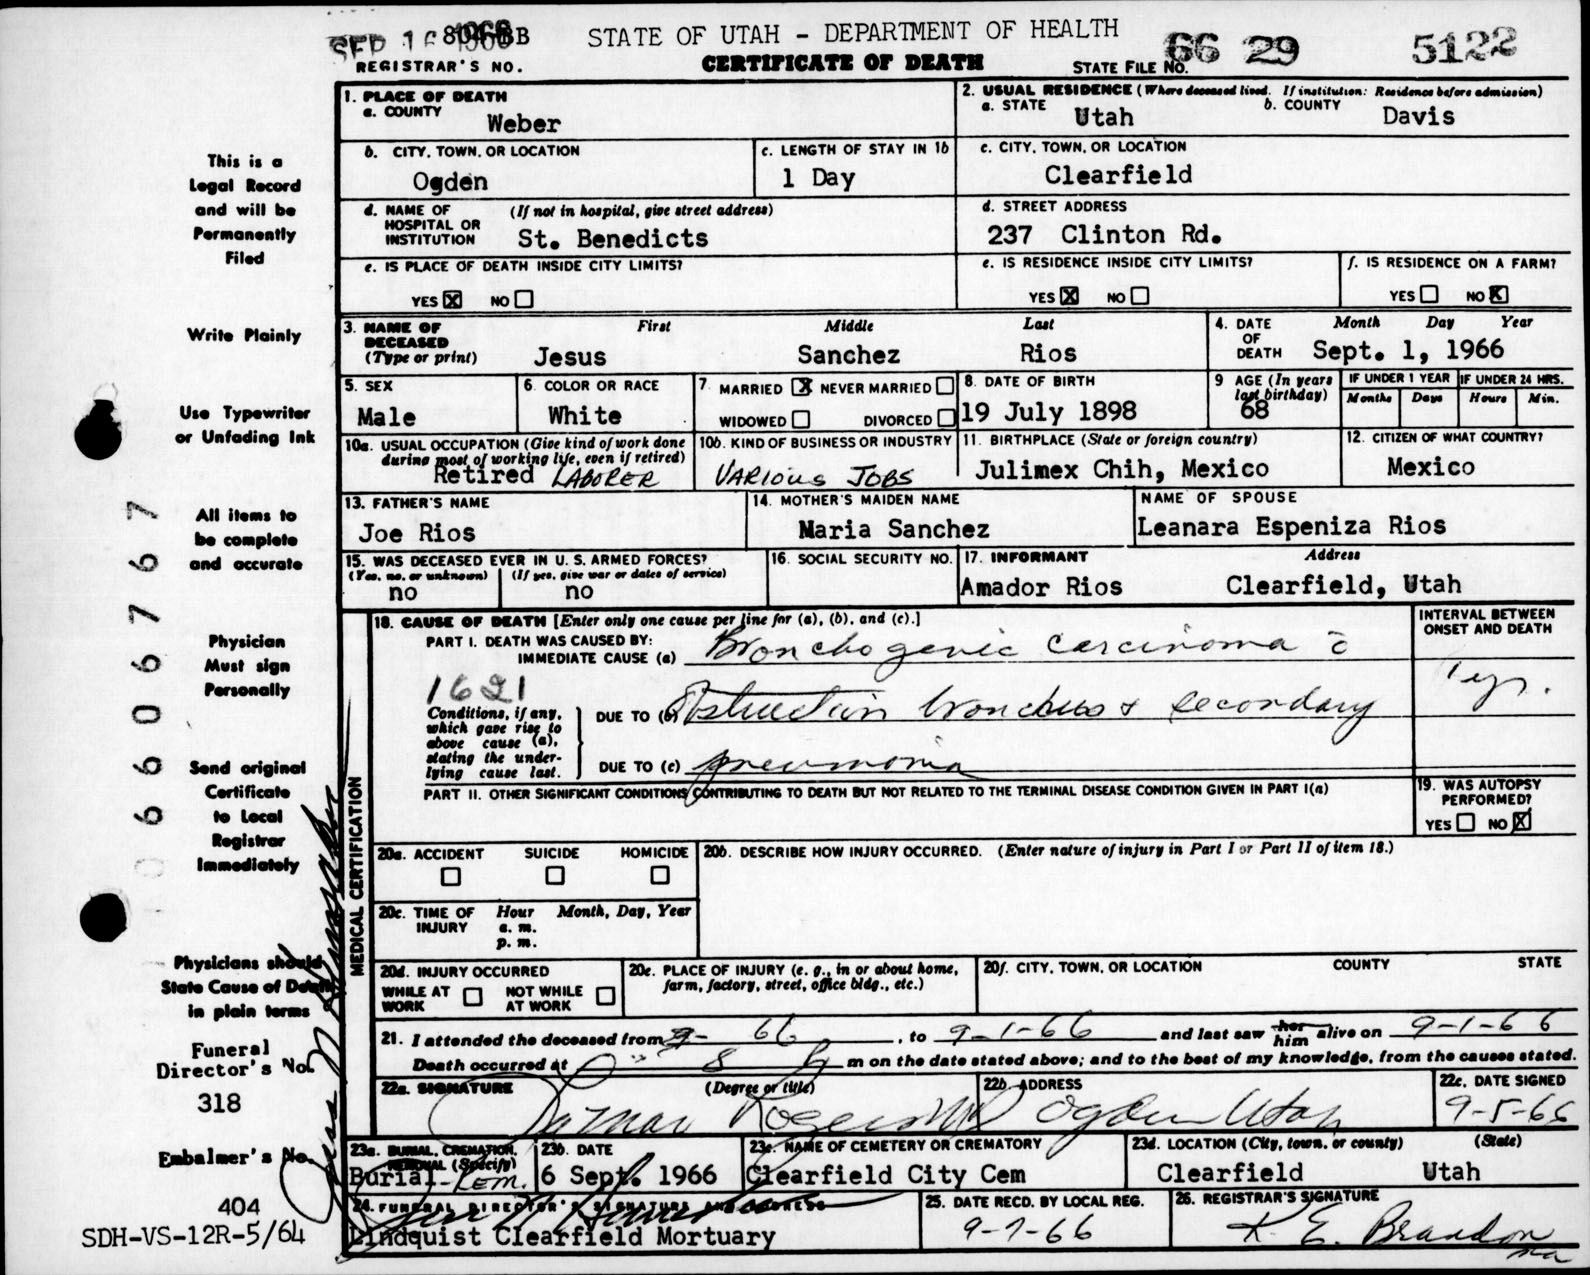 SEP 16 1966 804-BB
STATE OF UTAH - DEPARTMENT OF HEALTH
REGISTRAR'S NO.
CERTIFICATE OF DEATH
STATE FILE NO. 66 29 5122
1. PLACE OF DEATH
a. COUNTY
Weber
2. USUAL RESIDENCE (Where deceased lived. If institution: Residence before admission)
a. STATE Utah
b. COUNTY Davis
b. CITY, TOWN, OR LOCATION
Ogden
c. LENGTH OF STAY IN 1b
1 Day
c. CITY, TOWN, OR LOCATION
Clearfield
d. NAME OF HOSPITAL OR INSTITUTION
(If not in hospital, give street address)
St. Benedicts
d. STREET ADDRESS
237 Clinton Rd.
e. IS PLACE OF DEATH INSIDE CITY LIMITS?
YES X NO
e. IS RESIDENCE INSIDE CITY LIMITS?
YES X NO
f. IS RESIDENCE ON A FARM?
YES NO X
3. NAME OF DECEASED
(Type or print)
First Middle Last
Jesus Sanchez Rios
4. DATE OF DEATH
Month Day Year
Sept. 1, 1966
5. SEX
Male
6. COLOR OR RACE
White
7. MARRIED X NEVER MARRIED
WIDOWED DIVORCED
8. DATE OF BIRTH
19 July 1898
9 AGE (In years last birthday)
68
IF UNDER 1 YEAR
Months Days
IF UNDER 24 HRS.
Hours Min.
10a. USUAL OCCUPATION (Give kind of work done during most of working life, even if retired)
Retired LABORER
10b. KIND OF BUSINESS OR INDUSTRY
VARIOUS JOBS
11. BIRTHPLACE (State or foreign country)
Julimex Chih, Mexico
12. CITIZEN OF WHAT COUNTRY?
Mexico
13. FATHER'S NAME
Joe Rios
14. MOTHER'S MAIDEN NAME
Maria Sanchez
NAME OF SPOUSE
Leanara Espeniza Rios
15. WAS DECEASED EVER IN U. S. ARMED FORCES?
(Yes, no, or unknown) (If yes, give war or dates of service)
no no
16. SOCIAL SECURITY NO.
17. INFORMANT Address
Amador Rios Clearfield, Utah
18. CAUSE OF DEATH [Enter only one cause per line for (a), (b), and (c).]
INTERVAL BETWEEN ONSET AND DEATH
PART I. DEATH WAS CAUSED BY:
IMMEDIATE CAUSE (a) Bronchogenic carcinoma c̄
1621
1 yr.
Conditions, if any, which gave rise to above cause (a), stating the underlying cause last.
DUE TO (b) Obstruction bronchus + secondary
DUE TO (c) pneumonia
PART II. OTHER SIGNIFICANT CONDITIONS CONTRIBUTING TO DEATH BUT NOT RELATED TO THE TERMINAL DISEASE CONDITION GIVEN IN PART I(a)
19. WAS AUTOPSY PERFORMED?
YES NO X
MEDICAL CERTIFICATION
20a. ACCIDENT SUICIDE HOMICIDE
20b. DESCRIBE HOW INJURY OCCURRED. (Enter nature of injury in Part I or Part II of item 18.)
20c. TIME OF INJURY
Hour Month, Day, Year
a. m.
p. m.
20d. INJURY OCCURRED
WHILE AT WORK NOT WHILE AT WORK
20e. PLACE OF INJURY (e. g., in or about home, farm, factory, street, office bldg., etc.)
20f. CITY, TOWN, OR LOCATION COUNTY STATE
21. I attended the deceased from 66, to 9-1-66 and last saw her him alive on 9-1-66
Death occurred at m on the date stated above; and to the best of my knowledge, from the causes stated.
22a. SIGNATURE (Degree or title)
Rogers MD
22b. ADDRESS
Ogden Utah
22c. DATE SIGNED
9-5-66
23a. BURIAL, CREMATION, REMOVAL (Specify)
Burial-Rem.
23b. DATE
6 Sept. 1966
23c. NAME OF CEMETERY OR CREMATORY
Clearfield City Cem
23d. LOCATION (City, town, or county) (State)
Clearfield Utah
24. FUNERAL DIRECTOR'S SIGNATURE AND ADDRESS
Lindquist Clearfield Mortuary
25. DATE RECD. BY LOCAL REG.
9-7-66
26. REGISTRAR'S SIGNATURE
K. E. Brandon
This is a
Legal Record
and will be
Permanently
Filed
Write Plainly
Use Typewriter
or Unfading Ink
All items to
be complete
and accurate
Physician
Must sign
Personally
Send original
Certificate
to Local
Registrar
Immediately
Physicians should
State Cause of Death
in plain terms
Funeral
Director's No.
318
Embalmer's No.
404
SDH-VS-12R-5/64